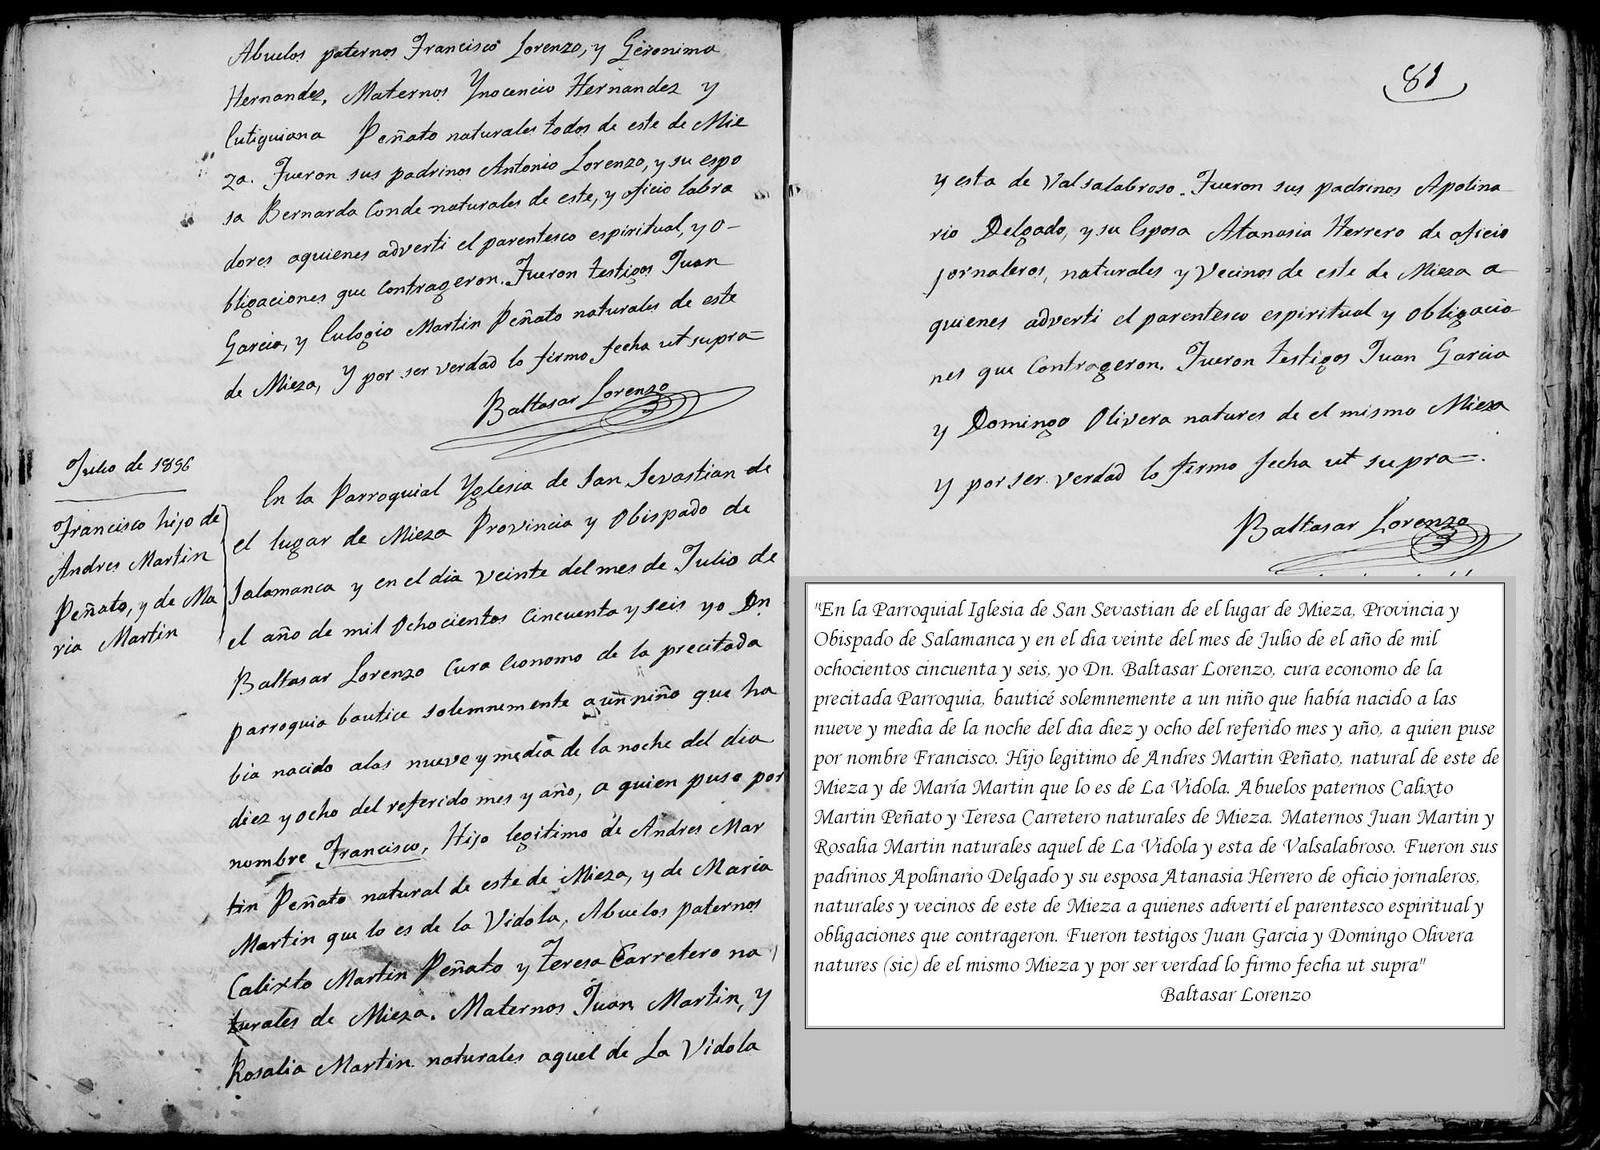 Abuelos paternos Francisco Lorenzo, y Geronima
Hernandez, Maternos Ynocencio Hernandez y
Cutiquiana Peñato naturales todos de este de Mie
za. Fueron sus padrinos Antonio Lorenzo, y su espo
sa Bernarda Conde naturales de este, y oficio labra
dores aquienes adverti el parentesco espiritual, y o-
bligaciones que contrageron. Fueron testigos Juan
Garcia, y Eulogio Martin Peñato naturales de este
de Mieza, y por ser verdad lo firmo fecha ut supra=
Baltasar Lorenzo
Julio de 1856
Francisco hijo de
Andres Martin
Peñato, y de Ma
ria Martin
En la Parroquial Yglesia de San Sevastian de
el lugar de Mieza Provincia y Obispado de
Salamanca y en el dia veinte del mes de Julio de
el año de mil ochocientos cincuenta y seis yo Dn
Baltasar Lorenzo Cura Economo de la precitada
parroquia bautice solemnemente a un niño que ha
bia nacido alas nueve y media de la noche del dia
diez y ocho del referido mes y año, a quien puse por
nombre Francisco, Hijo legitimo de Andres Mar
tin Peñato natural de este de Mieza, y de Maria
Martin que lo es de la Vidola, Abuelos paternos
Calixto Martin Peñato y Teresa Carretero na
turales de Mieza. Maternos Juan Martin, y
Rosalia Martin naturales aquel de La Vidola
81
y esta de Valsalabroso. Fueron sus padrinos Apolina
rio Delgado, y su Esposa Atanasia Herrero de oficio
jornaleros, naturales y Vecinos de este de Mieza a
quienes adverti el parentesco espiritual y obligacio
nes que contrageron. Fueron testigos Juan Garcia
y Domingo Olivera natures de el mismo Mieza
y por ser verdad lo firmo fecha ut supra=.
Baltasar Lorenzo
"En la Parroquial Iglesia de San Sevastian de el lugar de Mieza, Provincia y
Obispado de Salamanca y en el dia veinte del mes de Julio de el año de mil
ochocientos cincuenta y seis, yo Dn. Baltasar Lorenzo, cura economo de la
precitada Parroquia, bauticé solemnemente a un niño que había nacido a las
nueve y media de la noche del dia diez y ocho del referido mes y año, a quien puse
por nombre Francisco. Hijo legitimo de Andres Martin Peñato, natural de este de
Mieza y de María Martin que lo es de La Vidola. Abuelos paternos Calixto
Martin Peñato y Teresa Carretero naturales de Mieza. Maternos Juan Martin y
Rosalia Martin naturales aquel de La Vidola y esta de Valsalabroso. Fueron sus
padrinos Apolinario Delgado y su esposa Atanasia Herrero de oficio jornaleros,
naturales y vecinos de este de Mieza a quienes advertí el parentesco espiritual y
obligaciones que contrageron. Fueron testigos Juan Garcia y Domingo Olivera
natures (sic) de el mismo Mieza y por ser verdad lo firmo fecha ut supra"
Baltasar Lorenzo